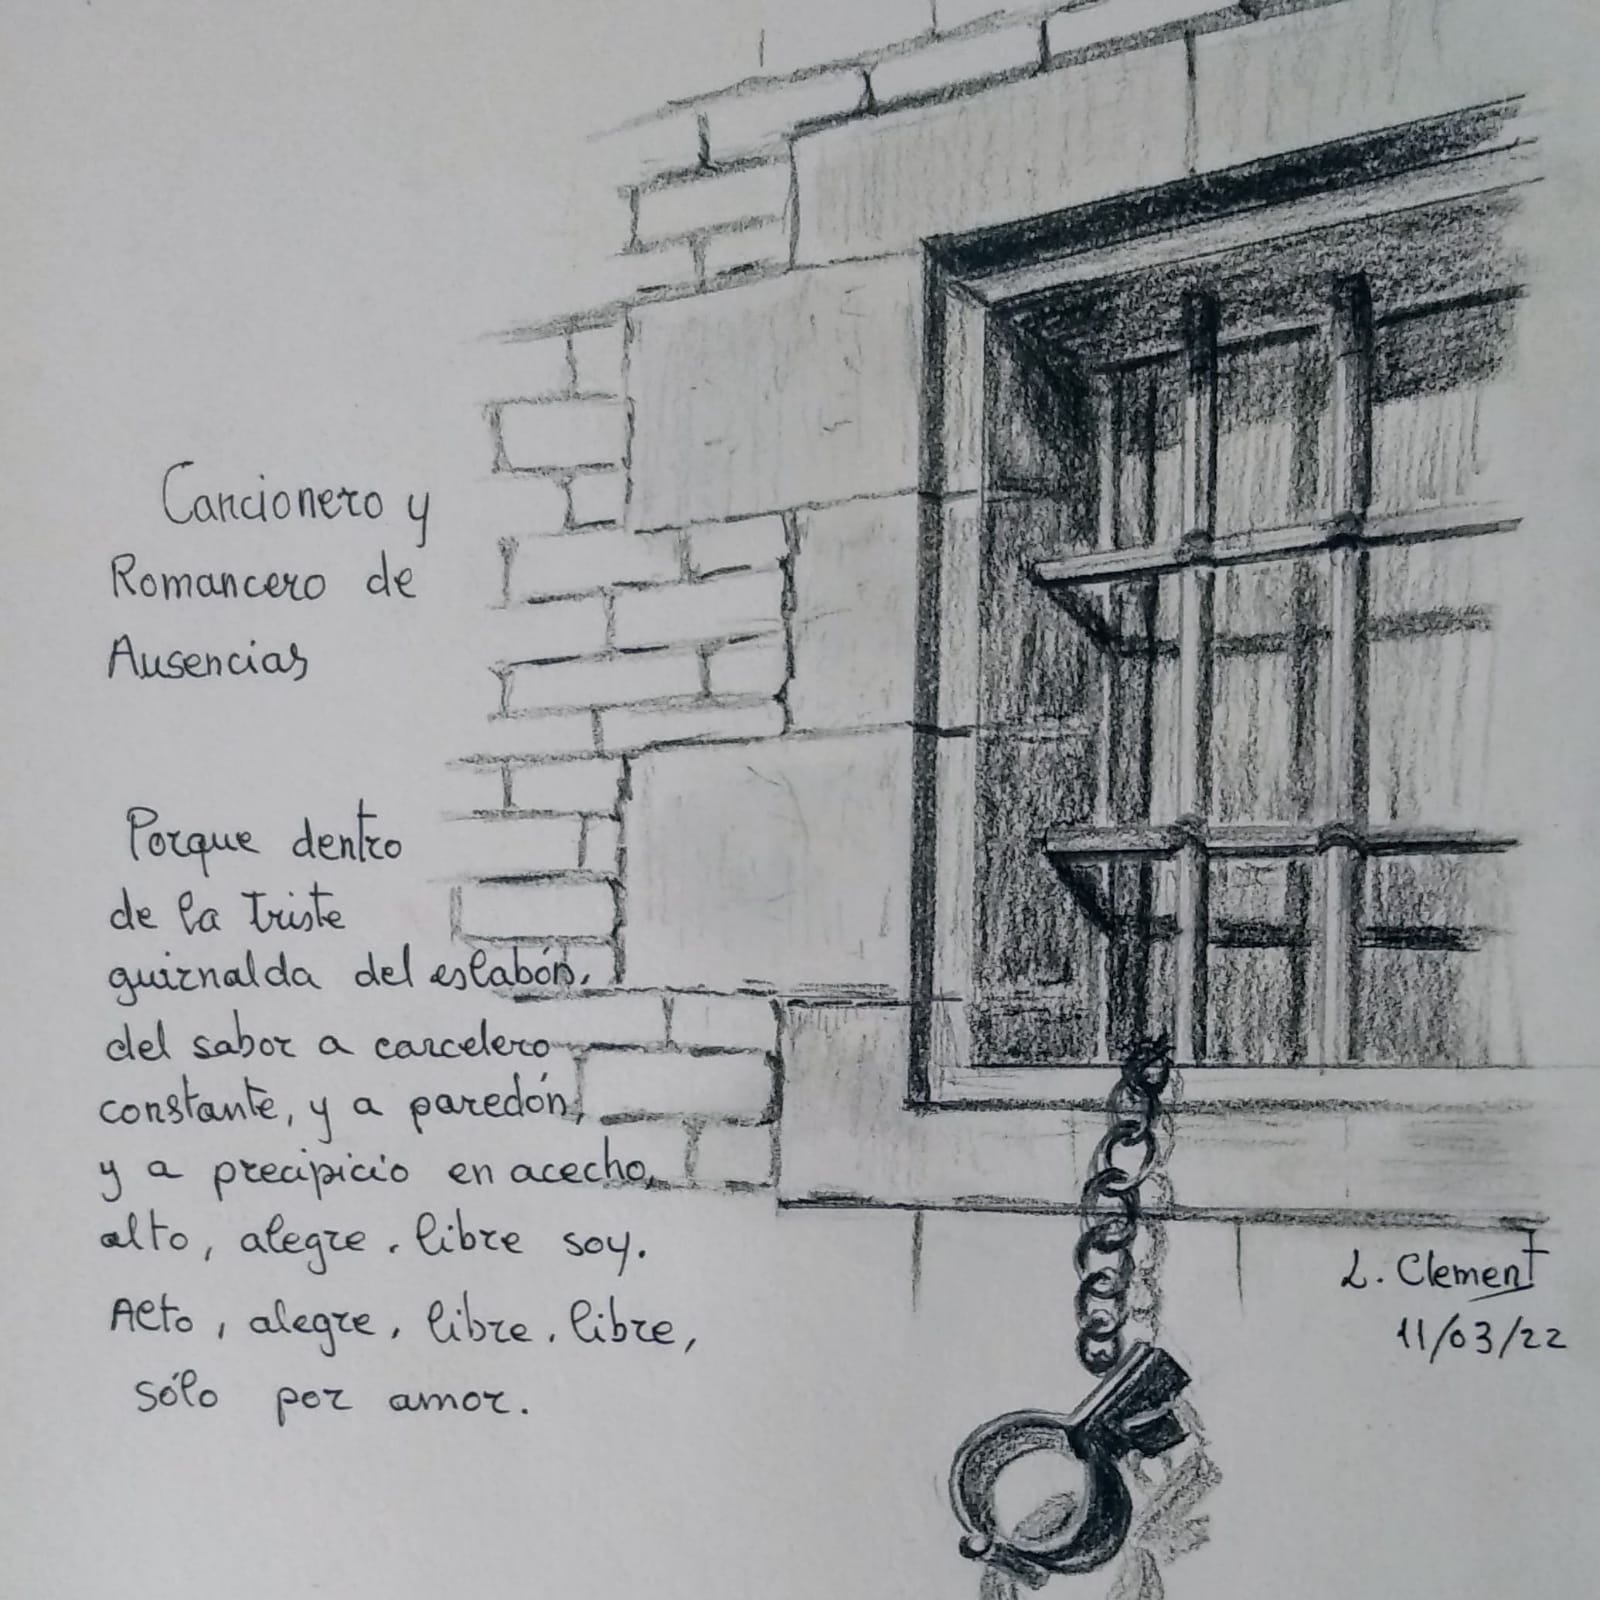 Cancionero y
Romancero de
Ausencias
Porque dentro
de la triste
guirnalda del eslabón,
del sabor a carcelero
constante, y a paredón,
y a precipicio en acecho,
alto, alegre, libre soy.
Alto, alegre, libre, libre,
sólo por amor.
L. Clement
11/03/22